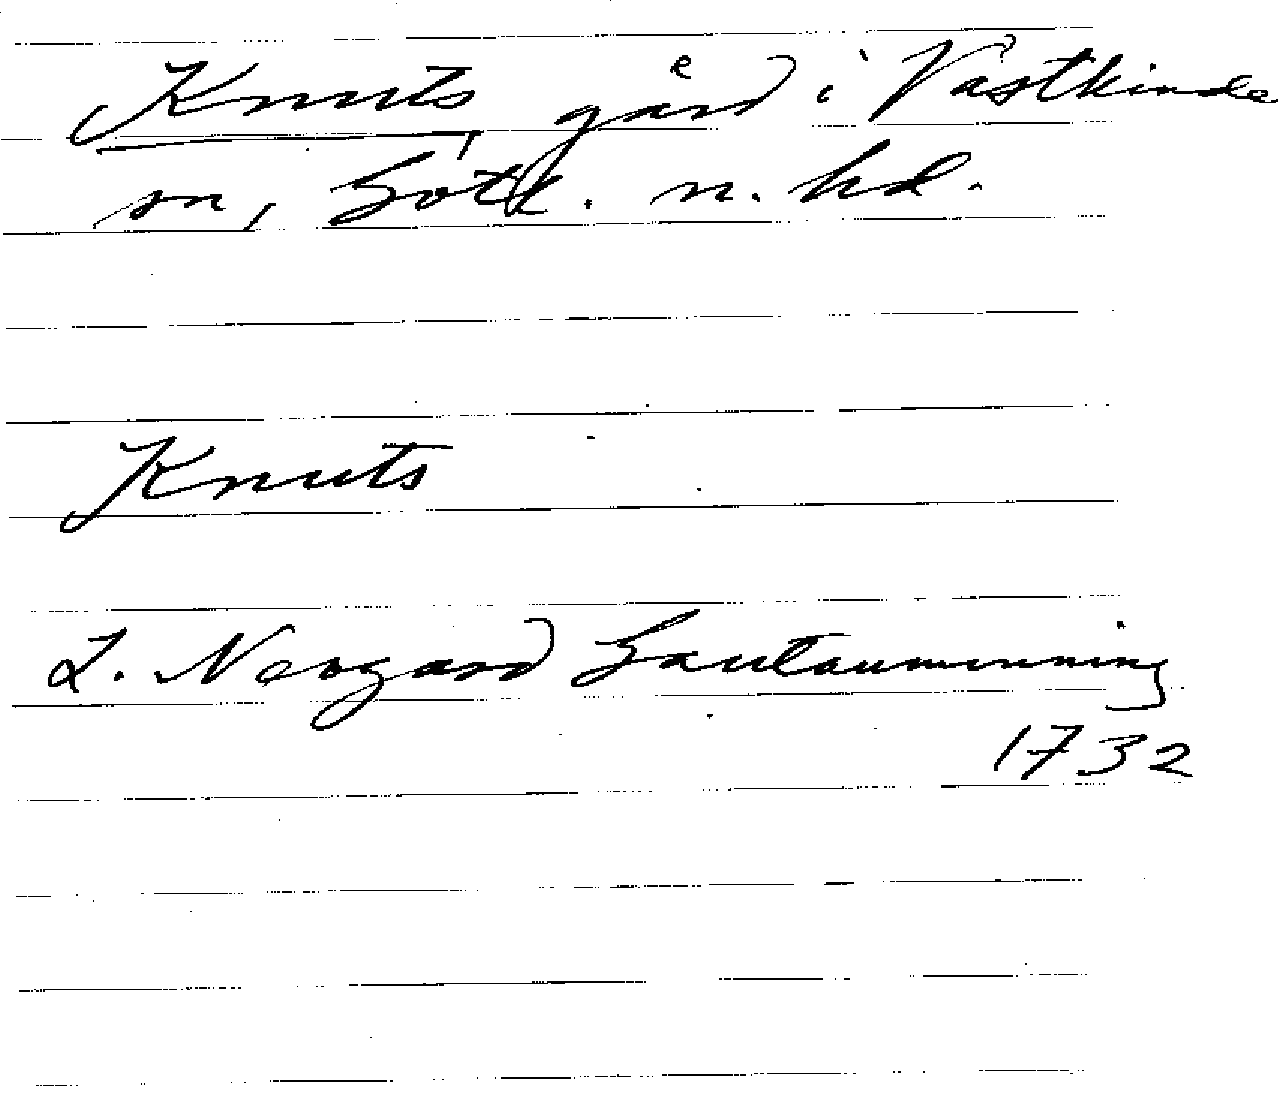 Knuts, gård i Västkinde
sn, Gotl. n. hd.
Knuts
L. Neogard Gautauminning
1732